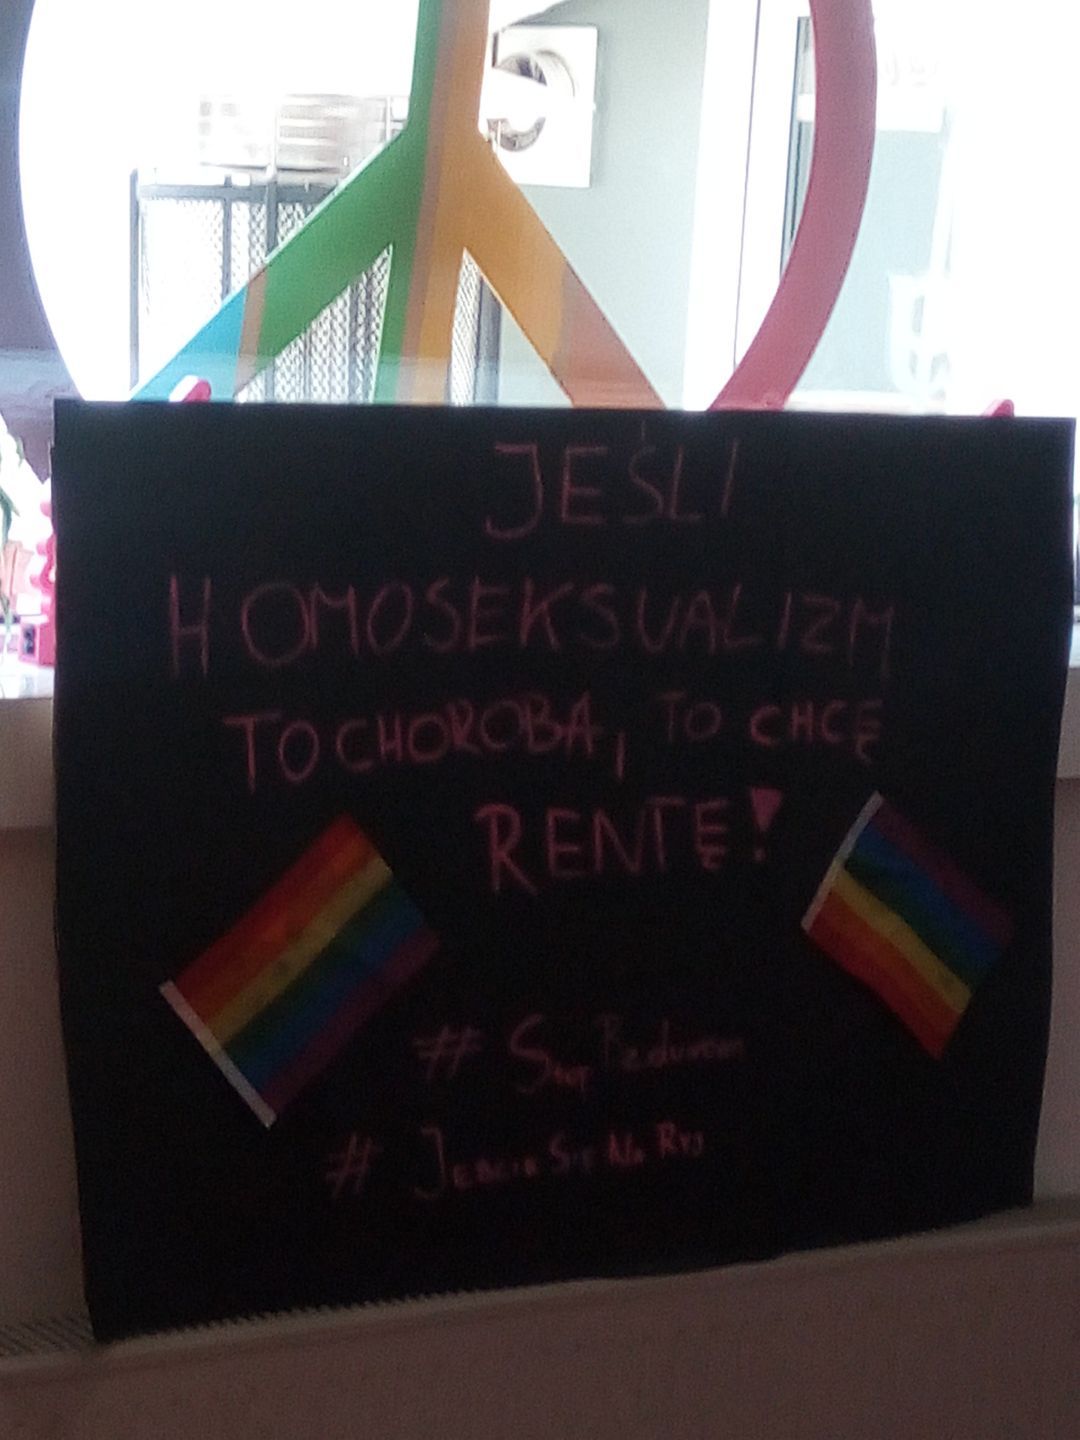 JEŚLI
HOMOSEKSUALIZM
TO CHOROBA, TO CHCĘ
RENTĘ!
# Stop Bzdurom
# Jebcie Się Na Ryj